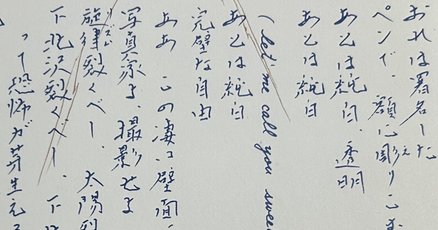 おれは署名した
ペンで、額に彫りこま
あとは純白、透明
あとは純白
(let me call you swee
あとは純白
完璧な自由
ああ この凄い壁面に
写真家よ 撮影せよ
旋律裂くべー、太陽裂
下北沢裂くべー、下
って恐怖が芽生える